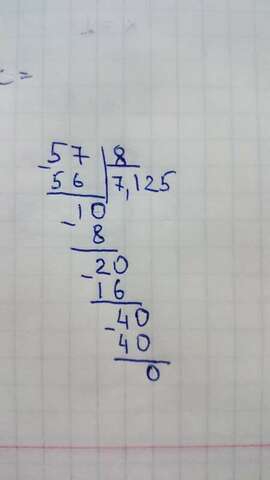 -57 | 8
56 | 7,125
-10
8
-20
16
-40
40
0